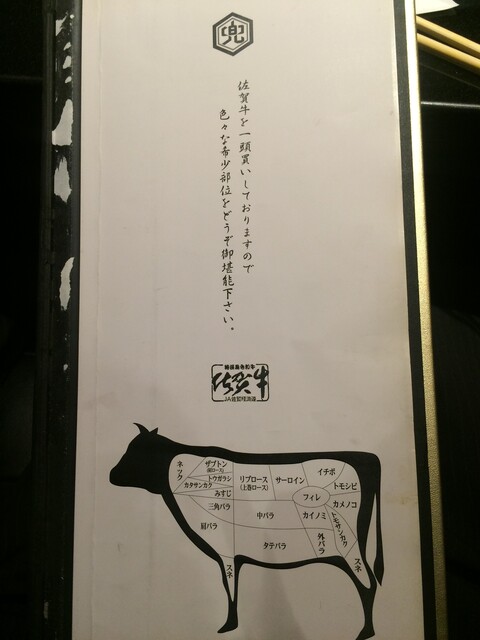 兜
佐賀牛を一頭買いしておりますので
色々な希少部位をどうぞ御堪能下さい。
佐賀牛
ネック
ザブトン
トウガラシ
カタサンカク
みすじ
三角バラ
肩バラ
リブロース
(上巻ロース)
サーロイン
イチボ
トモシビ
フィレ
カメノコ
中バラ
カイノミ
トモサンカク
タテバラ
外バラ
スネ
スネ